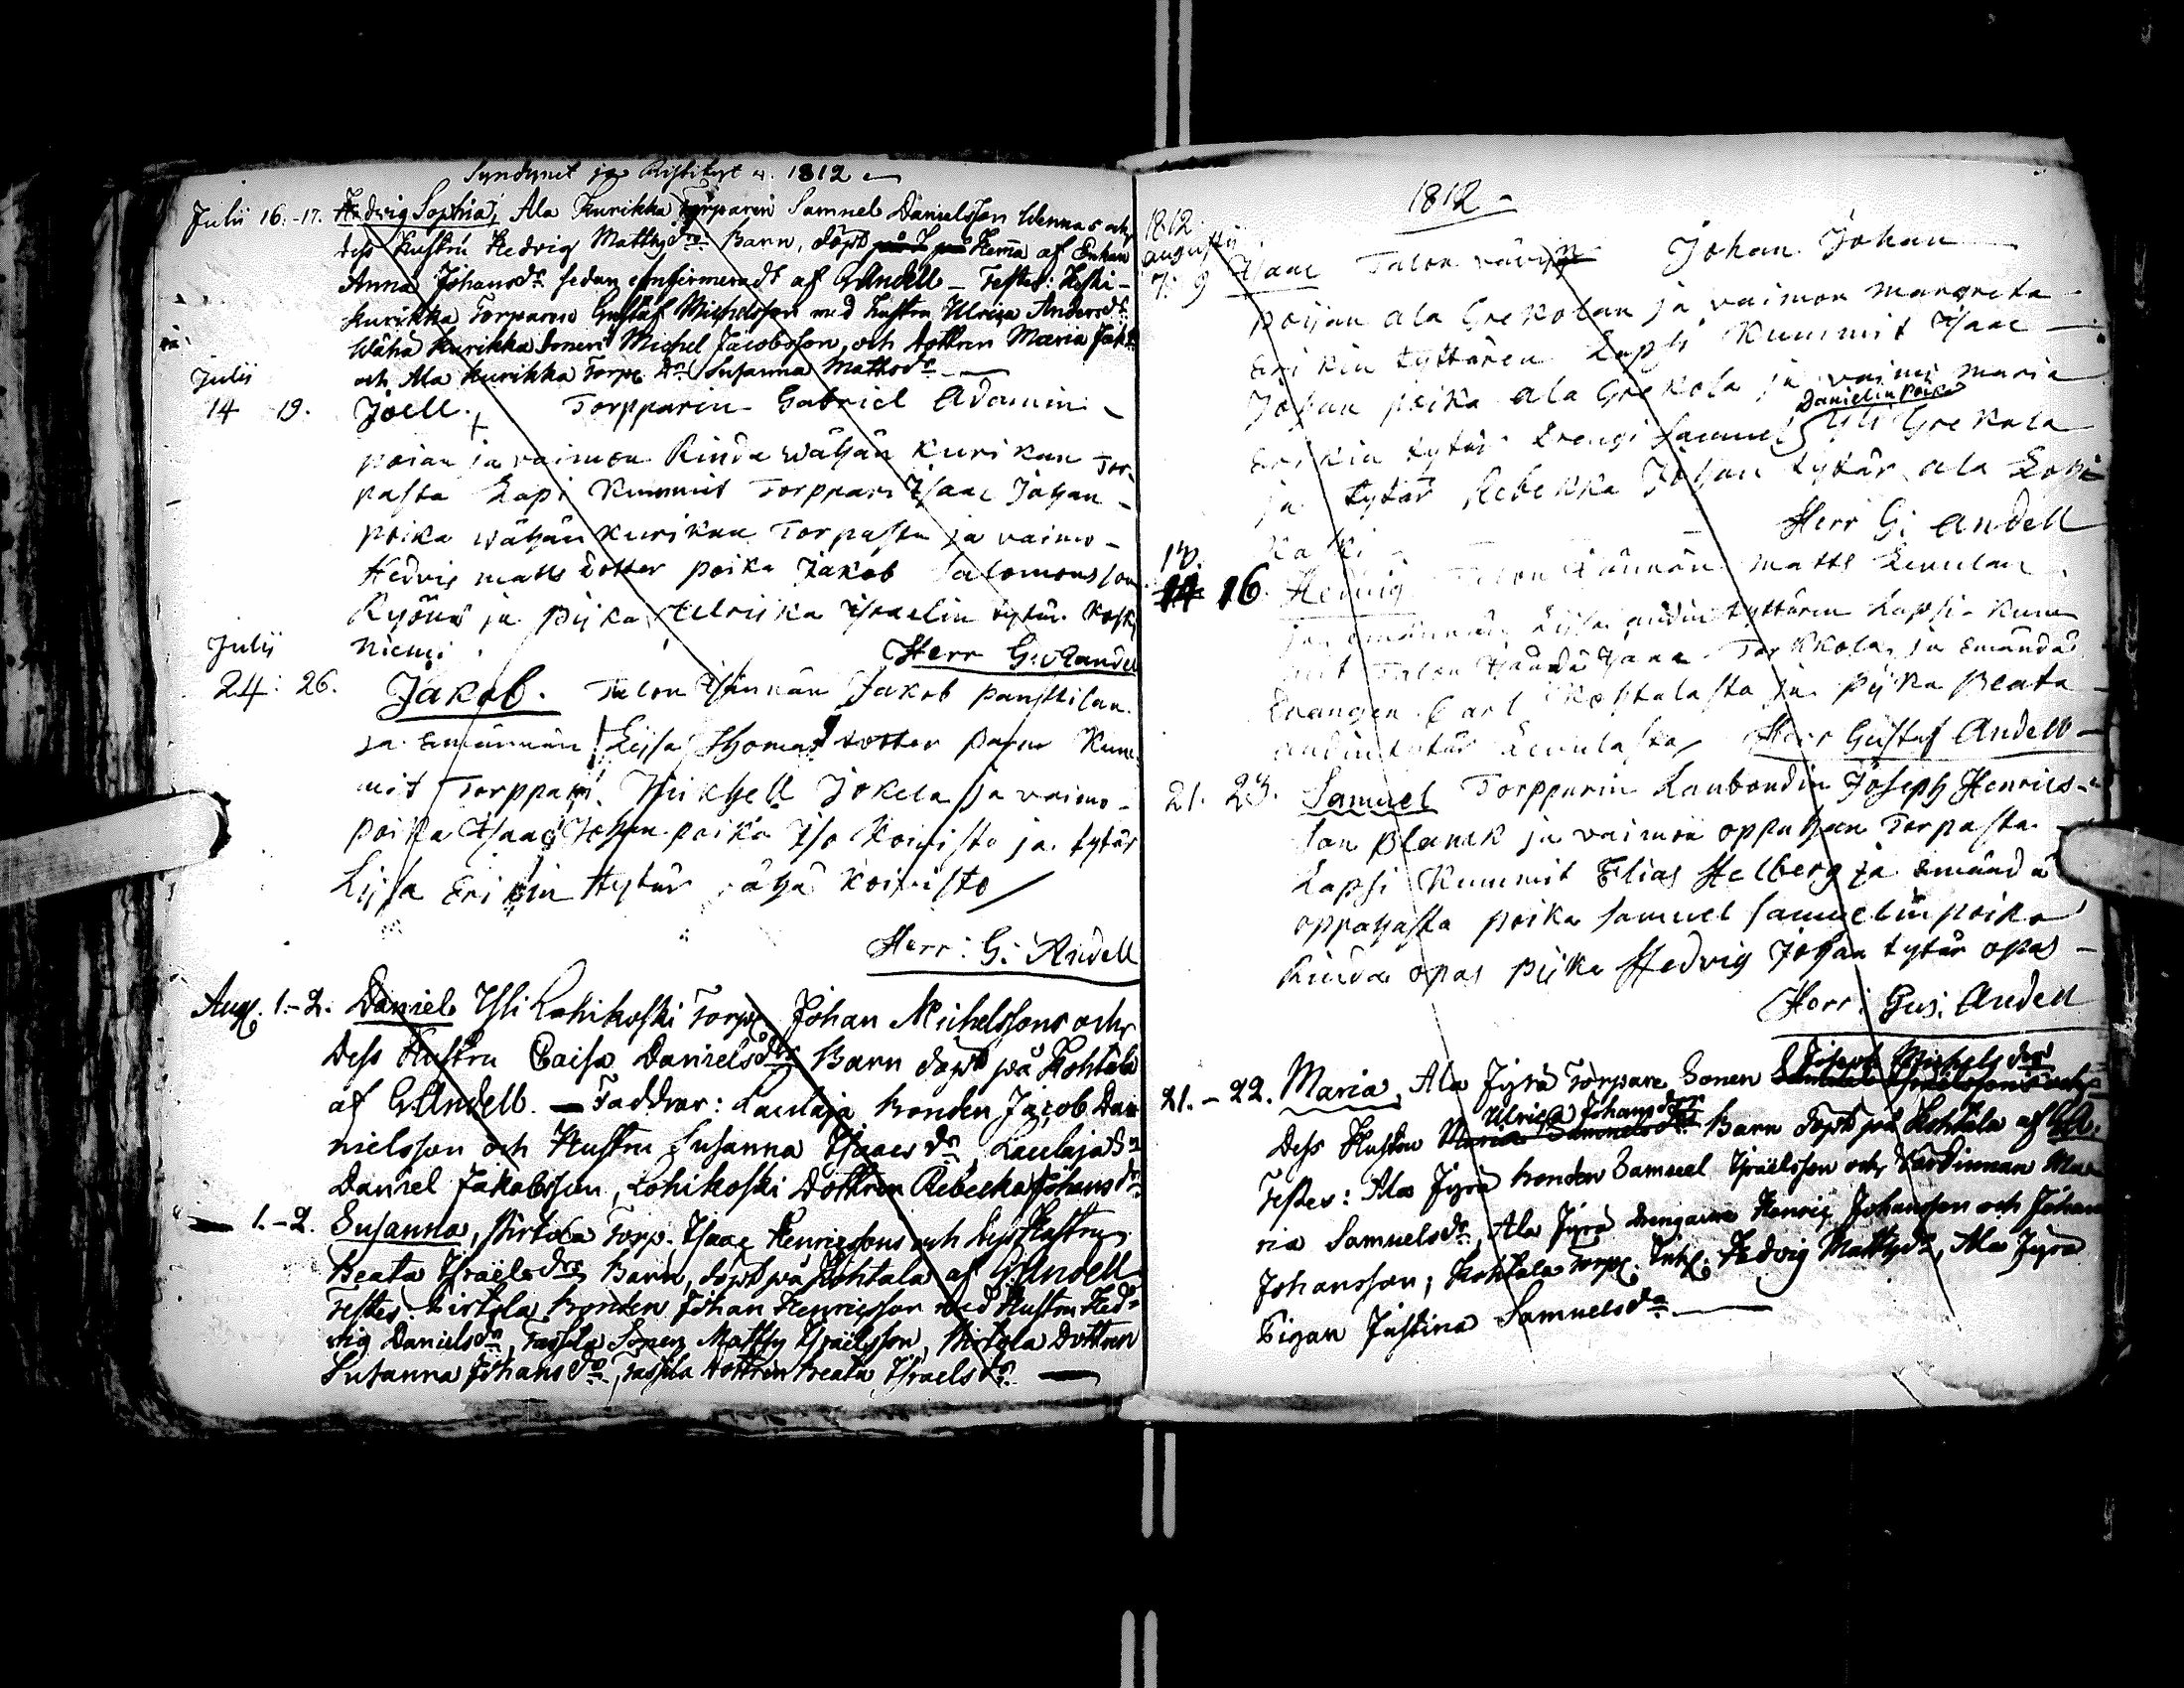 Syndynet ja Ristityt a. 1812
Julii 16.-17. Hedvig Sophia, Ala Kurikka Torparen Samuel Danielsson Wennas och
dess Hustru Hedvig Mattsdr Barn, döpt på Hema af Enkan
Anna Johansdr sedan confirmeradt af GAndell - Testes: Keski-
Kurikka Torparen Gustaf Michelsson med hustru Ulrica Andersdr
Wähä Kurikka Sonen Michel Jacobsson, och dottren Maria Jak
och Ala Kurikka Torp. Dr Susanna Mattsdr
Julii
14 19. Joell. Torpparin Gabriel Adamin
poian ja vaimon Rinda wähän Kurikan Tor-
pasta Lapsi Kummit Torppari Isaac Johan
poika wähän Kurikan Torpasta ja vaimo
Hedvig matts dotter poika Jakob Salomonsson
ja Piika Ulriika Israelin tytär Koski
niemi
Julii Herr G. Andell
24: 26. Jakob. Talon Isännän Jakob panttilan
ja Emännän Liisa Thomas dotter Barn Kum
mit Torppari Mikhell Jokela ja vaimo
poika Isaac Johan poika Iso Koivisto ja tytär
Liisa Erikin tytär vähä Koivisto
Herr: G: Andell
Aug. 1.-2. Daniel Ylli Lohikoski Torp. Johan Michelssons och
Dess Hustru Caisa Danielsdrs Barn döpt på Kohtala
af GAndell. - Faddrar: Laulaja bonden Jacob Da
nielsson och Hustru Susanna Isaacsdr, Laulaja Sn
Daniel Jakobsson, Lohikoski Dottren Rebecka Johansdr
1.-2. Susanna, Pirtola Torp. Isaac Henricssons och dess Hustru
Beata Israelsdrs Barn, döpt på Kohtala af GAndell
Testes: Pirtola bonden Johan Henricsson med Hustru Hed-
vig Danielsdr, Tassila Sonen Matths Israelsson, Pirtola Dottren
Susanna Johansdr, Tassila dottren Beata Israelsdr.
1812
1812
augusti
7. 9 Isaac Talon vävyn Johan Johan
poijan ala Grekolan ja vaimon margreta
Erikin tyttären Lapsi Kummit Isaac
Johan poika ala Grekola ja vaimo maria
Danielin poika
Erikin tytär Drengi Samuel Yli Grekola
ja tytär Rebekka Johan tytär ala Lohi
Kaski
Herr G: Andell
13.
14 16. Hedvig Talon Isännän Matts Leinulan
ja Emännän Liisa Andin tyttären Lapsi Kum
mit Talon Isändä Isaac Torkkola ja Emändä
Drangen Carl Kohtalasta ja Piika Beata
Andin tytär Leinulasta Herr Gustaf Andell
21. 23. Samuel Torpparin Lanbondin Joseph Henrics-
son Blank ja vaimon oppahan Torpasta
Lapsi Kummit Elias Helberg ja Emändä
oppahasta poika Samuel Samuelin poika
Rinda opas Piika Hedvig Johan tytär opas
Herr: Gus: Andell
21.-22. Maria, Ala Jyrä Torpare Sonen Joseph Michelsdn
Ulrica Johansdrs
Dess Hustru Maria Samuelsdrs Barn döpt på Kohtala af GA.
Testes: Ala Jyrä bonden Samuel Israelsson och Wärdinnan Ma
ria Samuelsdr, Ala Jyrä drengarne Henric Johansson och Johan
Johansson, Kohtala Torp. Ink. Hedvig Mattsdr, Ala Jyrä
Pigan Justina Samuelsdr